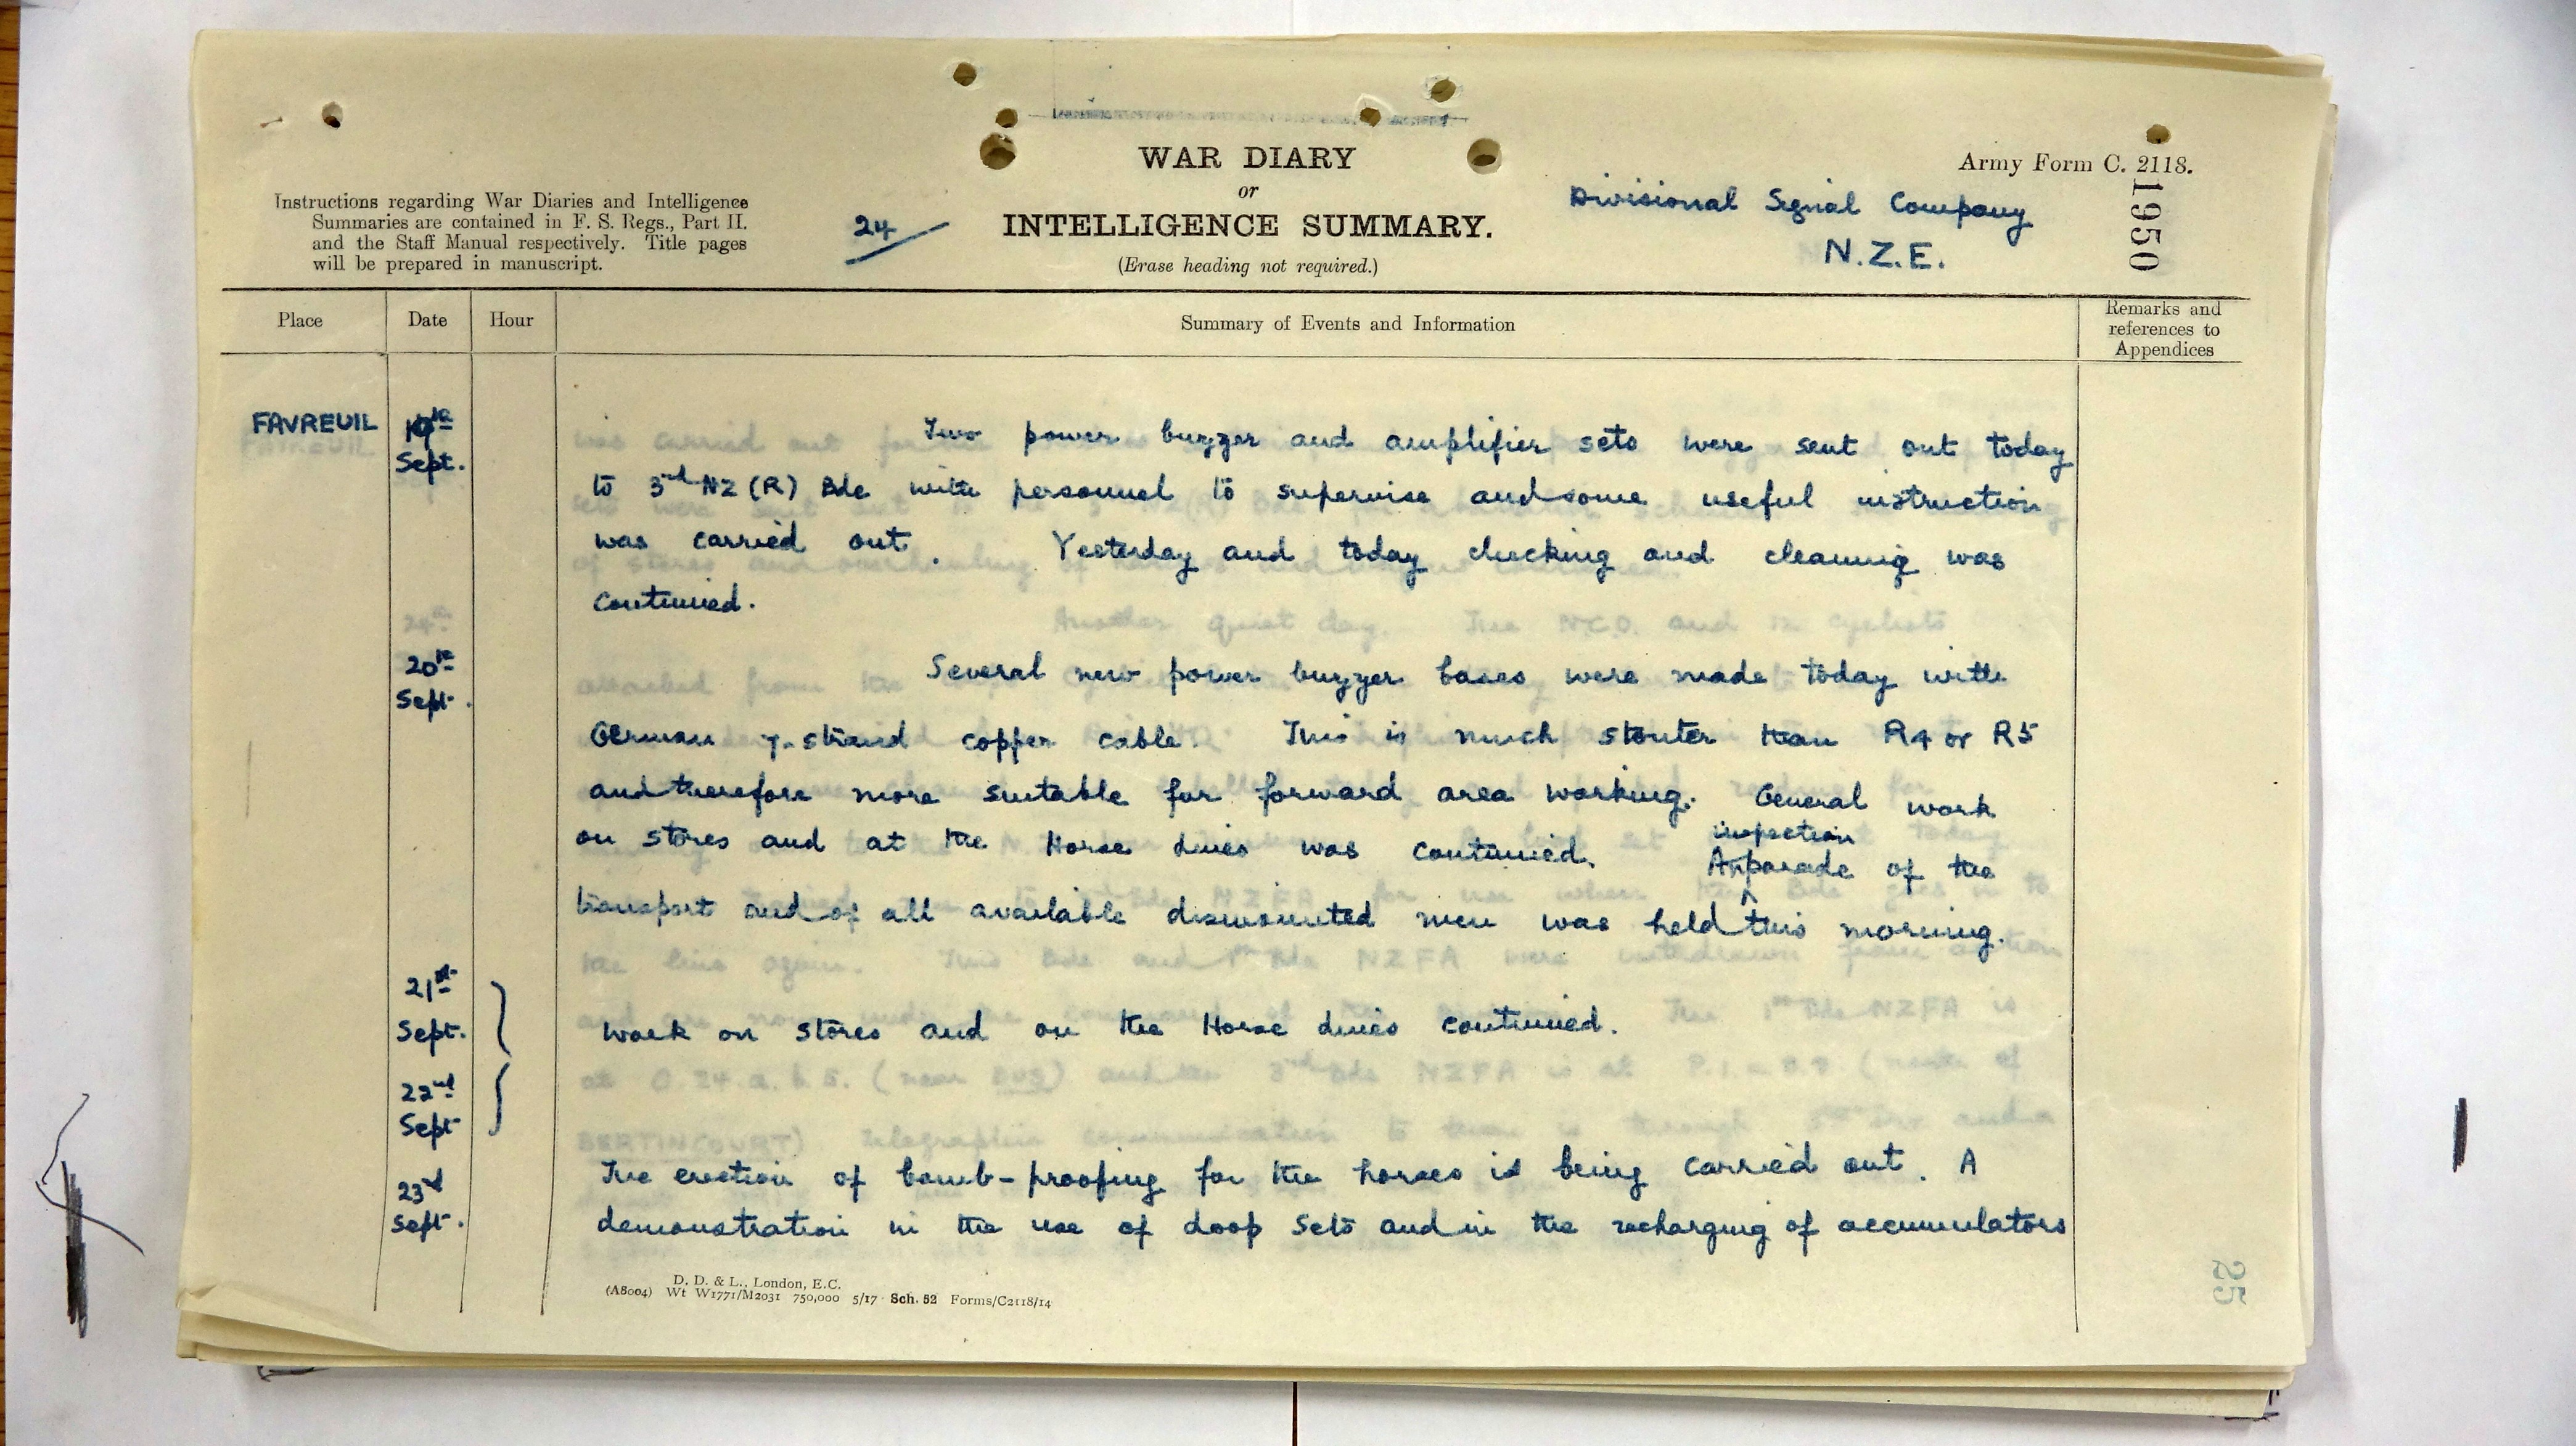 WAR DIARY
or
INTELLIGENCE SUMMARY.
(Erase heading not required.)
Army Form C. 2118.
1950
Instructions regarding War Diaries and Intelligence
Summaries are contained in F. S. Regs., Part II.
and the Staff Manual respectively. Title pages
will be prepared in manuscript.
24
Divisional Signal Company
N.Z.E.
Place Date Hour Summary of Events and Information Remarks and
references to
Appendices
FAVREUIL 19th Sept. Two power buzzer and amplifier sets were sent out today
to 3rd NZ (R) Bde with personnel to supervise and some useful instruction
was carried out. Yesterday and today checking and cleaning was
continued.
20th Sept. Several new power buzzer bases were made today with
German 7-strand copper cable. This is much stouter than R4 or R5
and therefore more suitable for forward area working. General work
on stores and at the Horse Lines was continued. An inspection parade of the
transport and of all available dismounted men was held this morning.
21st
Sept. Work on stores and on the Horse Lines continued.
22nd
Sept
23rd The erection of bomb-proofing for the horses is being carried out. A
Sept. demonstration in the use of Loop Sets and in the recharging of accumulators
D. D. & L., London, E.C.
(A8004) Wt W1771/M2031 750,000 5/17 Sch. 52 Forms/C2118/14
25